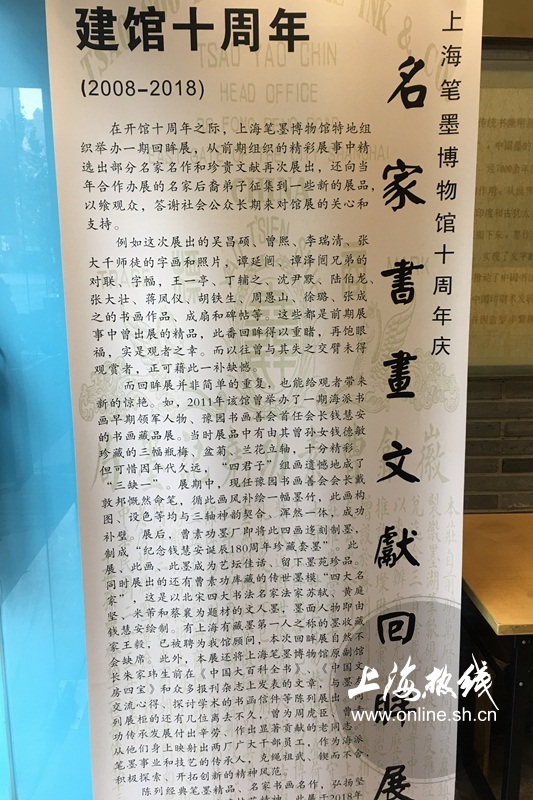 建馆十周年
(2008-2018)
上海笔墨博物馆十周年庆
名家書畫文獻回眸展
在开馆十周年之际，上海笔墨博物馆特地组
织举办一期回眸展，从前期组织的精彩展事中精
选出部分名家名作和珍贵文献再次展出，还向当
年合作办展的名家后裔弟子征集到一些新的展品，
以飨观众，答谢社会公众长期来对馆展的关心和
支持。
例如这次展出的吴昌硕、曾熙、李瑞清、张
大千师徒的字画和照片，谭延闿、谭泽闿兄弟的
对联、字幅，王一亭、丁辅之、沈尹默、陆伯龙、
张大壮、蒋凤仪、胡铁生、周愚山、徐璐、张成
之的书画作品、成扇和碑帖等，这些都是前期展
事中曾出展的精品，此番回眸得以重睹，再饱眼
福，实是观者之幸。而以往曾与其失之交臂未得
观赏者，正可藉此一补缺憾。
而回眸展并非简单的重复，也能给观者带来
新的惊艳。如，2011年该馆曾举办了一期海派书
画早期领军人物、豫园书画善会首任会长钱慧安
的书画藏品展，当时展品中有由其曾孙女钱德敏
珍藏的三幅瓶梅、盆菊、兰花立轴，十分精彩，
但可惜因年代久远，“四君子”组画遗憾地成了
“三缺一”。展期中，现任豫园书画善会会长戴
敦邦慨然命笔，循此画风补绘一幅墨竹，此画构
图、设色等均与三轴神韵契合、浑然一体，成功
补壁。展后，曹素功墨厂即将此四画遴刻制墨，
制成“纪念钱慧安诞辰180周年珍藏套墨”。此
展，此画、此墨成为艺坛佳话、留下墨苑珍品。
同时展出的还有曹素功库藏的传世墨模“四大名
家”，这是以北宋四大书法名家法家苏轼、黄庭
坚、米芾和蔡襄为题材的文人墨，墨面人物即由
钱慧安绘制。有上海有藏墨第一人之称的墨收藏
家王毅，已被聘为我馆顾问，本次回眸展自然不
会缺席。此外，本展还将上海笔墨博物馆原副馆
长朱家玮生前在《中国大百科全书》、《中国文
房四宝》和众多报刊杂志上发表的文章，与墨
交流心得、探讨学术的书画信件等陈列展出
列展柜的还有几位离去不久，曾为周虎臣、曹
功传承发展付出辛劳、作出显著贡献的老同志
从他们身上映射出两厂广大干部员工，作为海派
笔墨事业和技艺的传承人，克绳祖武、锲而不舍，
积极探索、开拓创新的精神风范。
陈列经典笔墨精品、名家书画名作，弘扬坚
此展于2018年
TSAO YAO CHIN
HEAD OFFICE
INK & CO
上海热线
www.online.sh.cn